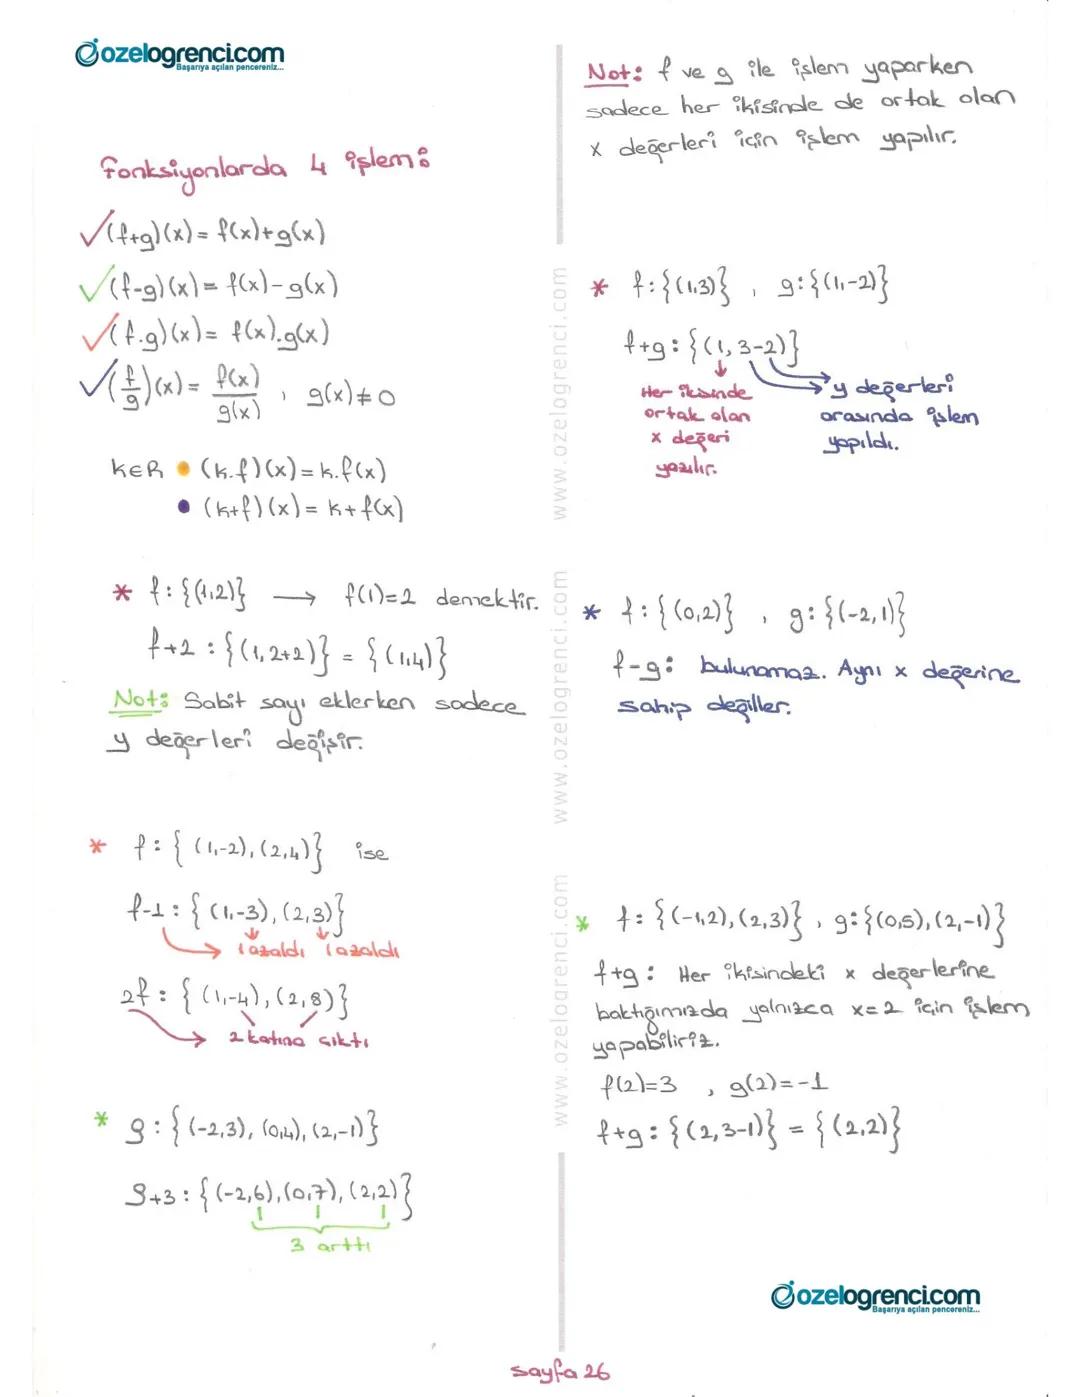 ozelogrenci.com
Başarıya açılan pencereniz...
Fonksiyonlarda 4 işlem:
✓(f+g)(x) = f(x)+g(x)
✓(f-g)(x) = f(x)-g(x)
✓(f.g)(x) = f(x).g(x)
✓(f/g)(x) = f(x)/g(x) , g(x)≠0
k∈R • (k.f)(x) = k.f(x)
• (k+f)(x) = k+f(x)
* f:{(1,2)} → f(1)=2 demektir.
f+2 : {(1,2+2)} = {(1,4)}
Not: Sabit sayı eklerken sadece
y değerleri değişir.
* f:{(1,-2),(2,4)} ise
f-1 : {(1,-3),(2,3)}
1 azaldı 1 azaldı
2f : {(1,-4),(2,8)}
2 katına çıktı
* g:{(-2,3),(0,4),(2,-1)}
g+3 : {(-2,6),(0,7),(2,2)}
3 arttı
www.ozelogrenci.com
www.ozelogrenci.com
www.ozelogrenci.com
Not: f ve g ile işlem yaparken
sadece her ikisinde de ortak olan
x değerleri için işlem yapılır.
* f:{(1,3)} , g:{(1,-2)}
f+g:{(1,3-2)}
Her ikisinde
ortak olan
x değeri
yazılır.
y değerleri
arasında işlem
yapıldı.
* f:{(0,2)} , g:{(-2,1)}
f-g: bulunamaz. Aynı x değerine
sahip değiller.
* f:{(-1,2),(2,3)} , g:{(0,5),(2,-1)}
f+g: Her ikisindeki x değerlerine
baktığımızda yalnızca x=2 için işlem
yapabiliriz.
f(2)=3 , g(2)=-1
f+g:{(2,3-1)} = {(2,2)}
ozelogrenci.com
Başarıya açılan pencereniz...
sayfa 26